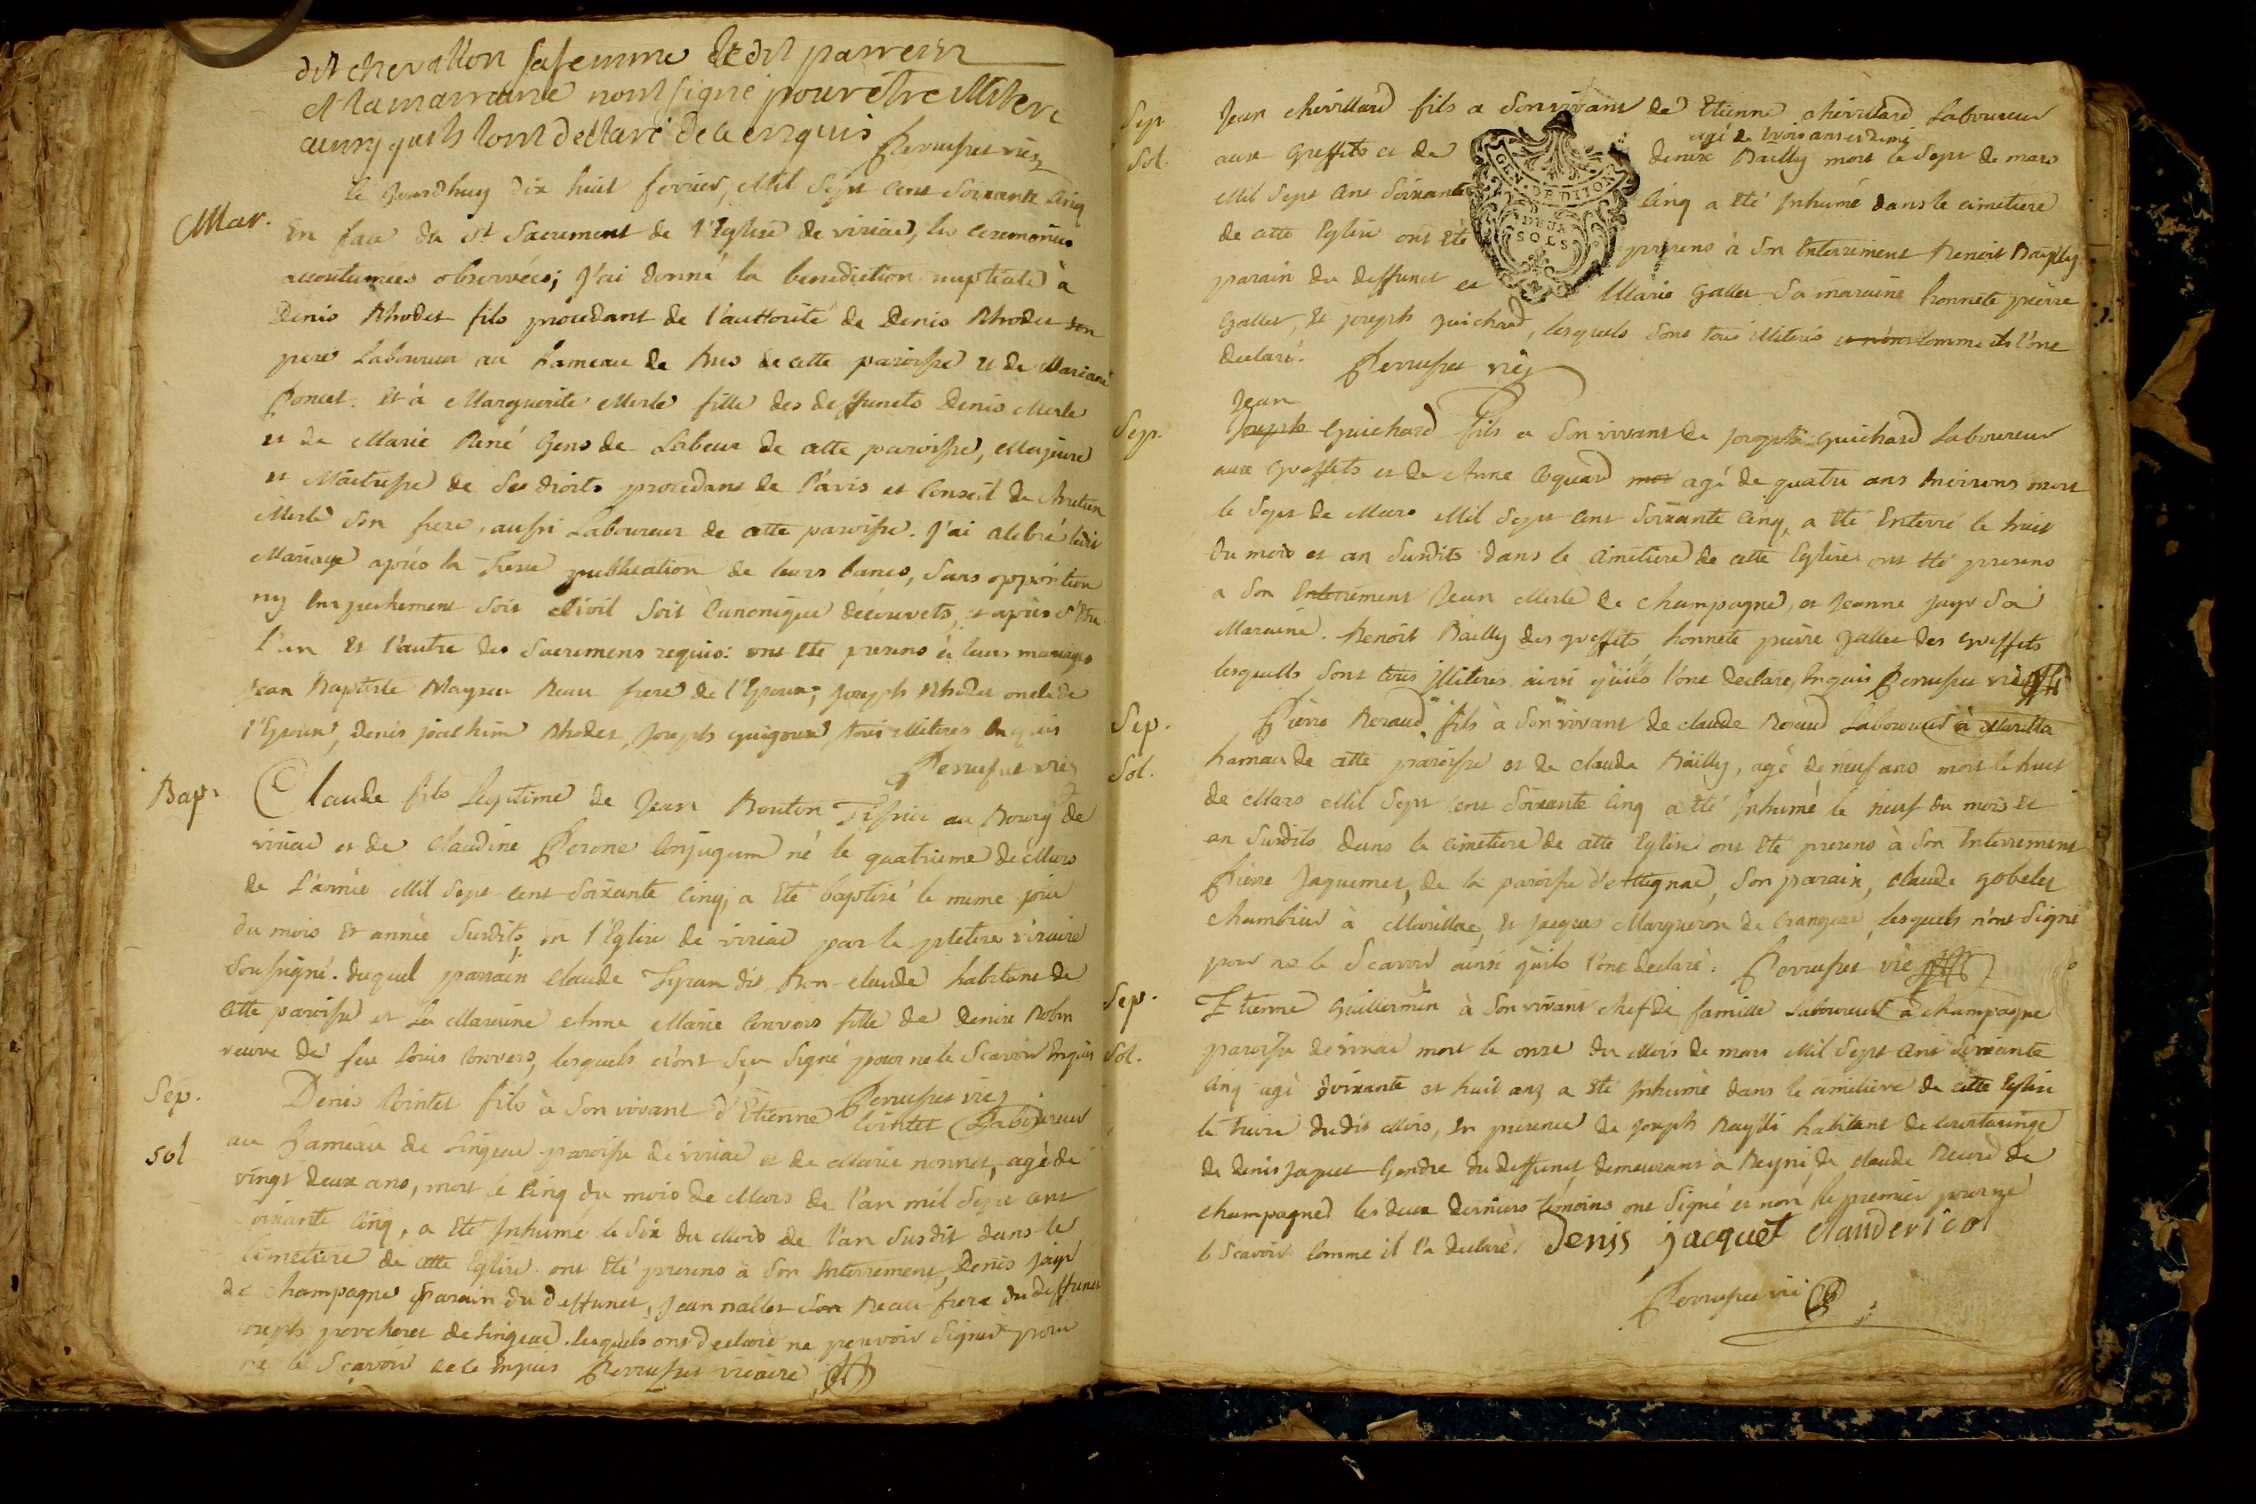 dit chevallon sa femme ledit parrein
et la marraine nont signé pour etre illitere
ainsy quils lont declaré de ce enquis Perruset vic
Mar.
ce jourdhuy dix huit fevrier, Mil sept cent soixante cinq
En face du st Sacrement de l'Eglise de viriac, les ceremonies
accoutumées observées; j'ai donné la benediction nuptiale à
Denis Rhodet fils procedant de l'authorité de Denis Rhodet son
pere Laboureur au hameau de Bus de cette paroisse et de Mariane
Poncet. Et à Marguerite Merle fille des deffunets Denis Merle
et de Marie René Gens de Labeur de cette paroisse, Majeure
et Maitresse de ses droits procedant de l'avis et Conseil de
Merle son frere, aussi Laboureur de cette paroisse. J'ai celebré ledit
Mariage après la publication de leurs bancs, sans opposition
ny empechement soit Civil soit Canonique decouverts, et après
l'un et l'autre des Sacremens requis: ont eté presens à leurs mariages
Jean Baptiste Beau frere de l'Epoux; joseph Rhodet oncle de
l'Epoux, Denis joachim Rhodet, joseph guigoux, tous illiteres Enquis
Perruset vic
Bap.
Claude fils Legitime de Jean Bouton Tissier au Bourg de
viriac et de Claudine Perone Conjugum né le quatrieme de Mars
de l'année Mil sept cent soixante cinq, a eté baptisé le meme jour
du mois et année susdits, en l'Eglise de viriac par le pretre vicaire
soussigné. duquel parrain Claude Tyran dit Bon-claude habitant de
cette paroisse et la Maraine Anne Marie Convers fille de Denise Robin
veuve de feu Louis Convers, lesquels n'ont sçu signé pour ne le sçavoir Enquis
Perruset vic
Sep.
sol
Denis Cointet fils à son vivant d'Etienne Cointet Laboureur
au hameau de Lingeat paroisse de viriac et de Marie nonnet, agé de
vingt deux ans, mort le cinq du mois de Mars de l'an mil sept cent
soixante cinq, a eté Inhumé le six du Mois de l'an susdit dans le
Cimetiere de cette Eglise ont eté presens à son Enterrement, Denis jayr
de champagne Parain du deffunet, Jean nallet son Beau frere du deffunet
joseph porcheret de Lingeat. lesquels ont declaré ne pouvoir signer pour
ne le sçavoir de ce Enquis Perruset vicaire
Sep.
Sol.
Jean chevillard fils a son vivant de Etienne chevillard Laboureur
aux Greffets et de denise Bailly agé de trois ans et demi mort le sept de mars
GEN. DE DIJON
DEUX
SOLS
Mil sept cent soixante cinq a eté Inhumé dans le cimetiere
de cette Eglise ont eté presens à son Enterrement Benoit Bailly
parain du deffunet et Marie gallet sa maraine honnete pierre
gallet, et joseph guichard, lesquels sont tous illiteres comme ils l'ont
declaré. Perruset vic
Sep.
Jean
Joseph Guichard fils a son vivant de joseph Guichard Laboureur
aux Greffets et de Anne Coquard mor agé de quatre ans Environs mort
le sept de Mars Mil sept cent soixante cinq, a eté Enterré le huit
du mois et an susdits dans le Cimetiere de cette Eglise ont eté presens
a son Enterrement Jean Merle de champagne, et jeanne jayr sa
Maraine. Benoit Bailly des greffets, honnete pierre gallet des Greffets
lesquells sont tous illiteres ainsi qu'ils l'ont declaré, Enquis Perruset vic
Sep.
Sol.
Pierre Beraud fils à son vivant de claude Beraud Laboureur à Marilla
hameau de cette paroisse et de claude Bailly, agé de neuf ans mort le huit
de Mars Mil sept cent soixante cinq a eté Inhumé le neuf du mois et
an susdits dans le cimetiere de cette Eglise ont eté presens à son Enterrement
Pierre jaquemet, de la paroisse d'attignac, son parain, claude gobelet
chambrier à Marillac, et jacques Margueron de Crangeac, lesquels n'ont signé
pour ne le sçavoir ainsi qu'ils l'ont declaré. Perruset vic
Sep.
Sol.
Etienne Guillermin à son vivant chef de famille Laboureur à champagne
paroisse de viriac mort le onze du Mois de mars Mil sept cent soixante
cinq agé soixante et huit ans a eté Inhumé dans le cimetiere de cette Eglise
le treize dudit Mois, en presence de joseph Baylli habitant de
de denis jaquet Gendre du deffunet, demeurant a Reyni, de claude de
champagne les deux derniers temoins ont signé et non le premier pour ne
le sçavoir comme il l'a declaré. Denis jacquet Claude
Perruset vic